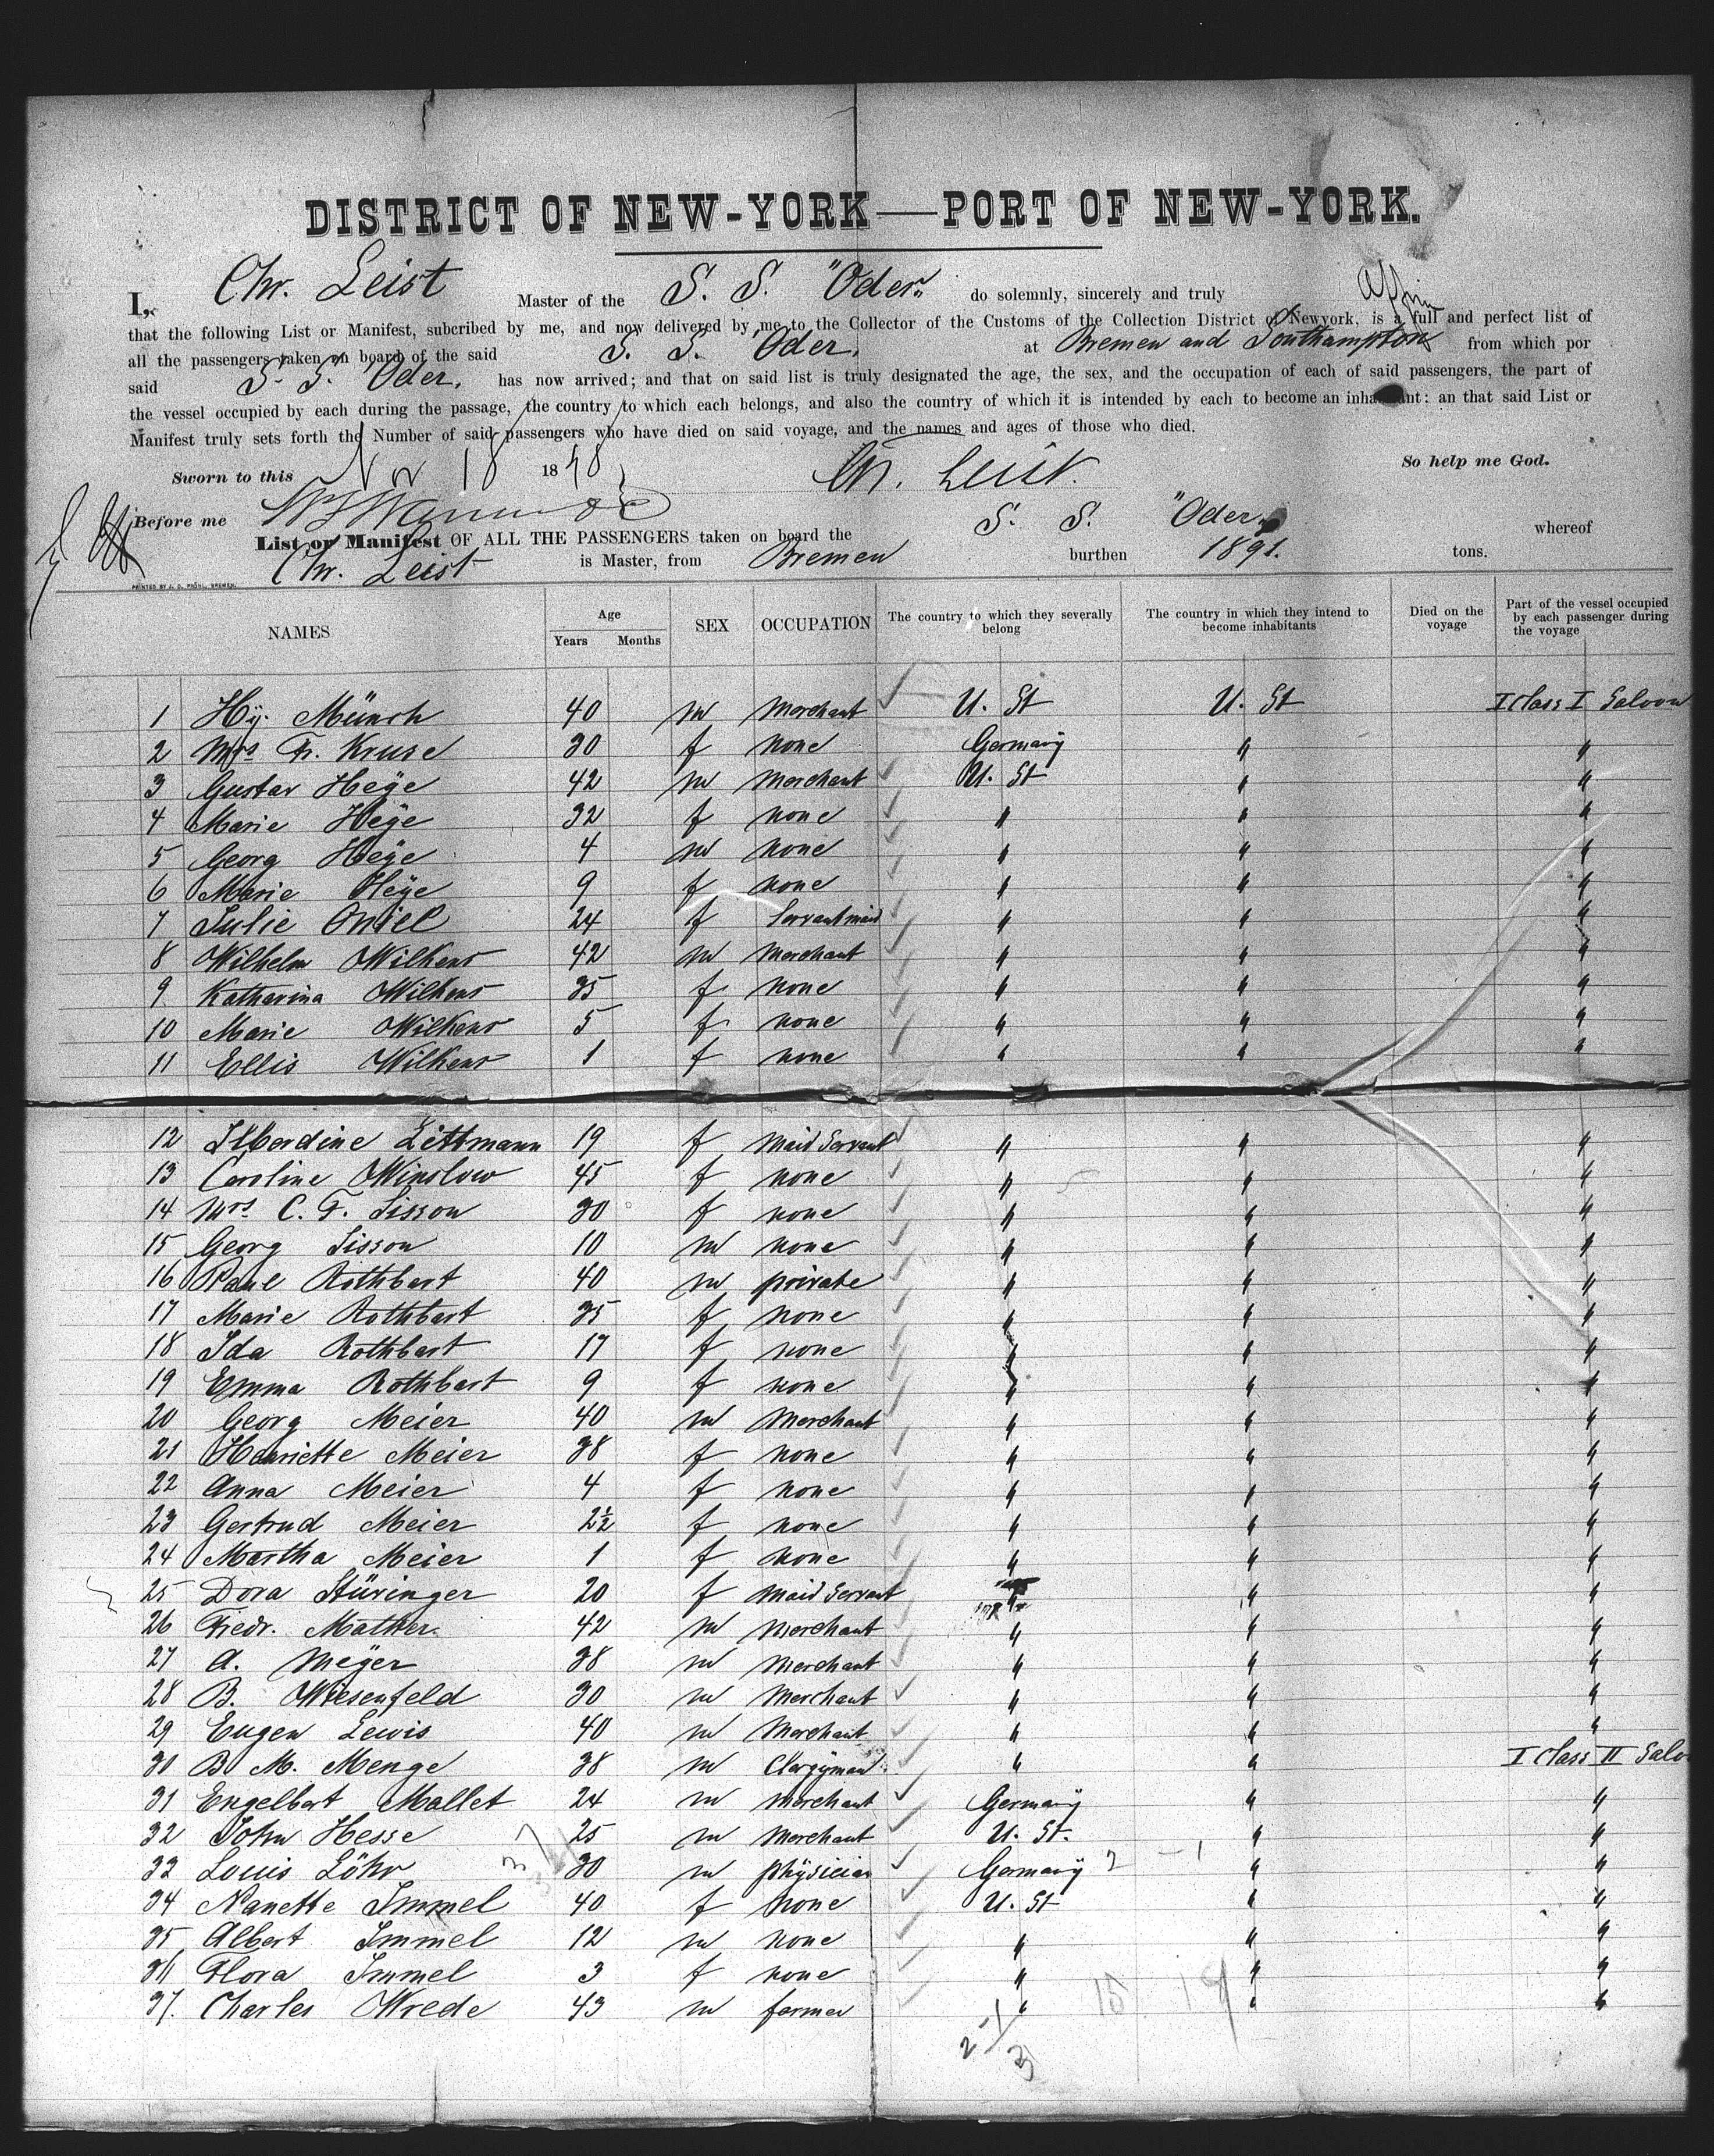 DISTRICT OF NEW-YORK—PORT OF NEW-YORK.
I, Chr. Leist Master of the S. S. "Oder" do solemnly, sincerely and truly affirm
that the following List or Manifest, subcribed by me, and now delivered by me to the Collector of the Customs of the Collection District of Newyork, is a full and perfect list of
all the passengers taken on board of the said S. S. Oder, at Bremen and Southampton from which por
said S. S. Oder, has now arrived; and that on said list is truly designated the age, the sex, and the occupation of each of said passengers, the part of
the vessel occupied by each during the passage, the country to which each belongs, and also the country of which it is intended by each to become an inhabitant: an that said List or
Manifest truly sets forth the Number of said passengers who have died on said voyage, and the names and ages of those who died.
Sworn to this Nov 18 18 Chr. Leist. So help me God.
Before me
List or Manifest OF ALL THE PASSENGERS taken on board the S. S. "Oder" whereof
Chr. Leist is Master, from Bremen burthen 1891. tons.
PRINTED BY J. D. PRÖHL, BREMEN.
NAMES Age Years Months SEX OCCUPATION The country to which they severally belong The country in which they intend to become inhabitants Died on the voyage Part of the vessel occupied by each passenger during the voyage
1 Hÿ. Münch 40 m Merchant U. St U. St I Class I Saloon
2 Mrs Fr. Kruse 30 f none Germany " "
3 Gustav Heÿe 42 m Merchant U. St " "
4 Marie Heÿe 32 f none " " "
5 Georg Heÿe 4 m none " " "
6 Marie Heÿe 9 f none " " "
7 Julie Oniel 24 f Servantmaid " " "
8 Wilhelm Wilkens 42 m Merchant " " "
9 Katharina Wilkens 35 f none " " "
10 Marie Wilkens 5 f none " " "
11 Ellis Wilkens 1 f none " " "
12 Lithmann 19 f Maid Servant " " "
13 Caroline Winslow 45 f none " " "
14 Mrs C. F. Sisson 30 f none " " "
15 Georg Sisson 10 m none " " "
16 Paul Rothbart 40 m private " " "
17 Marie Rothbart 35 f none " " "
18 Ida Rothbart 17 f none " " "
19 Emma Rothbart 9 f none " " "
20 Georg Meier 40 m Merchant " " "
21 Henriette Meier 38 f none " " "
22 Anna Meier 4 f none " " "
23 Gertrud Meier 2½ f none " " "
24 Martha Meier 1 f none " " "
25 Dora Stüringer 20 f Maid Servant " " "
26 Fredr. Mather 42 m Merchant " " "
27 A. Meÿer 38 m Merchant " " "
28 B. Wiesenfeld 30 m Merchant " " "
29 Eugen Lewis 40 m Merchant " " "
30 B. M. Menge 38 m Clergÿman " " I Class II Salo
31 Engelbert Mallet 24 m Merchant Germanÿ " "
32 John Hesse 25 m Merchant U. St. " "
33 Louis Löhr 30 m phÿsician Germanÿ " "
34 Nanette Immel 40 f none U. St " "
35 Albert Immel 12 m none " " "
36 Flora Immel 3 f none " " "
37. Charles Wrede 43 m farmer " " "
15 19
2-1
3